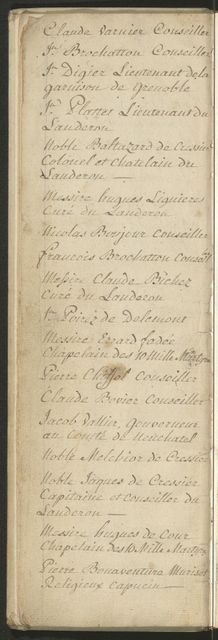 Claude Varnier Conseiller
Sr. Brochatton Conseiller
Sr. Digier Lieutenant de la
garnison de Grenoble
Sr. Plattes Lieutenant du
Landeron
Noble Baltazard de Cressier
Colonel et chatelain du
Landeron
Messire hugues Liguieres
Curé du Landeron
Nicolas Bonjour Conseiller
francois Brochatton Conseill
Messire Claude Bichez
Curé du Londeron
Sr. de Delemont
Messire Erard
Chapelain des 10 Mille Martyrs
Pierre Conseiller
Claude Bovier Conseiller
Jacob Vallier, Gouverneur
au Comté de Neuchatel
Noble Melchior de Cressier
Noble Jaques de Cressier
Capitaine et conseiller du
Landeron
Messire hugues de Cour
Chapelain des 10 Mille Martyrs
Pierre Bonaventure Muriset
Religieux capucin